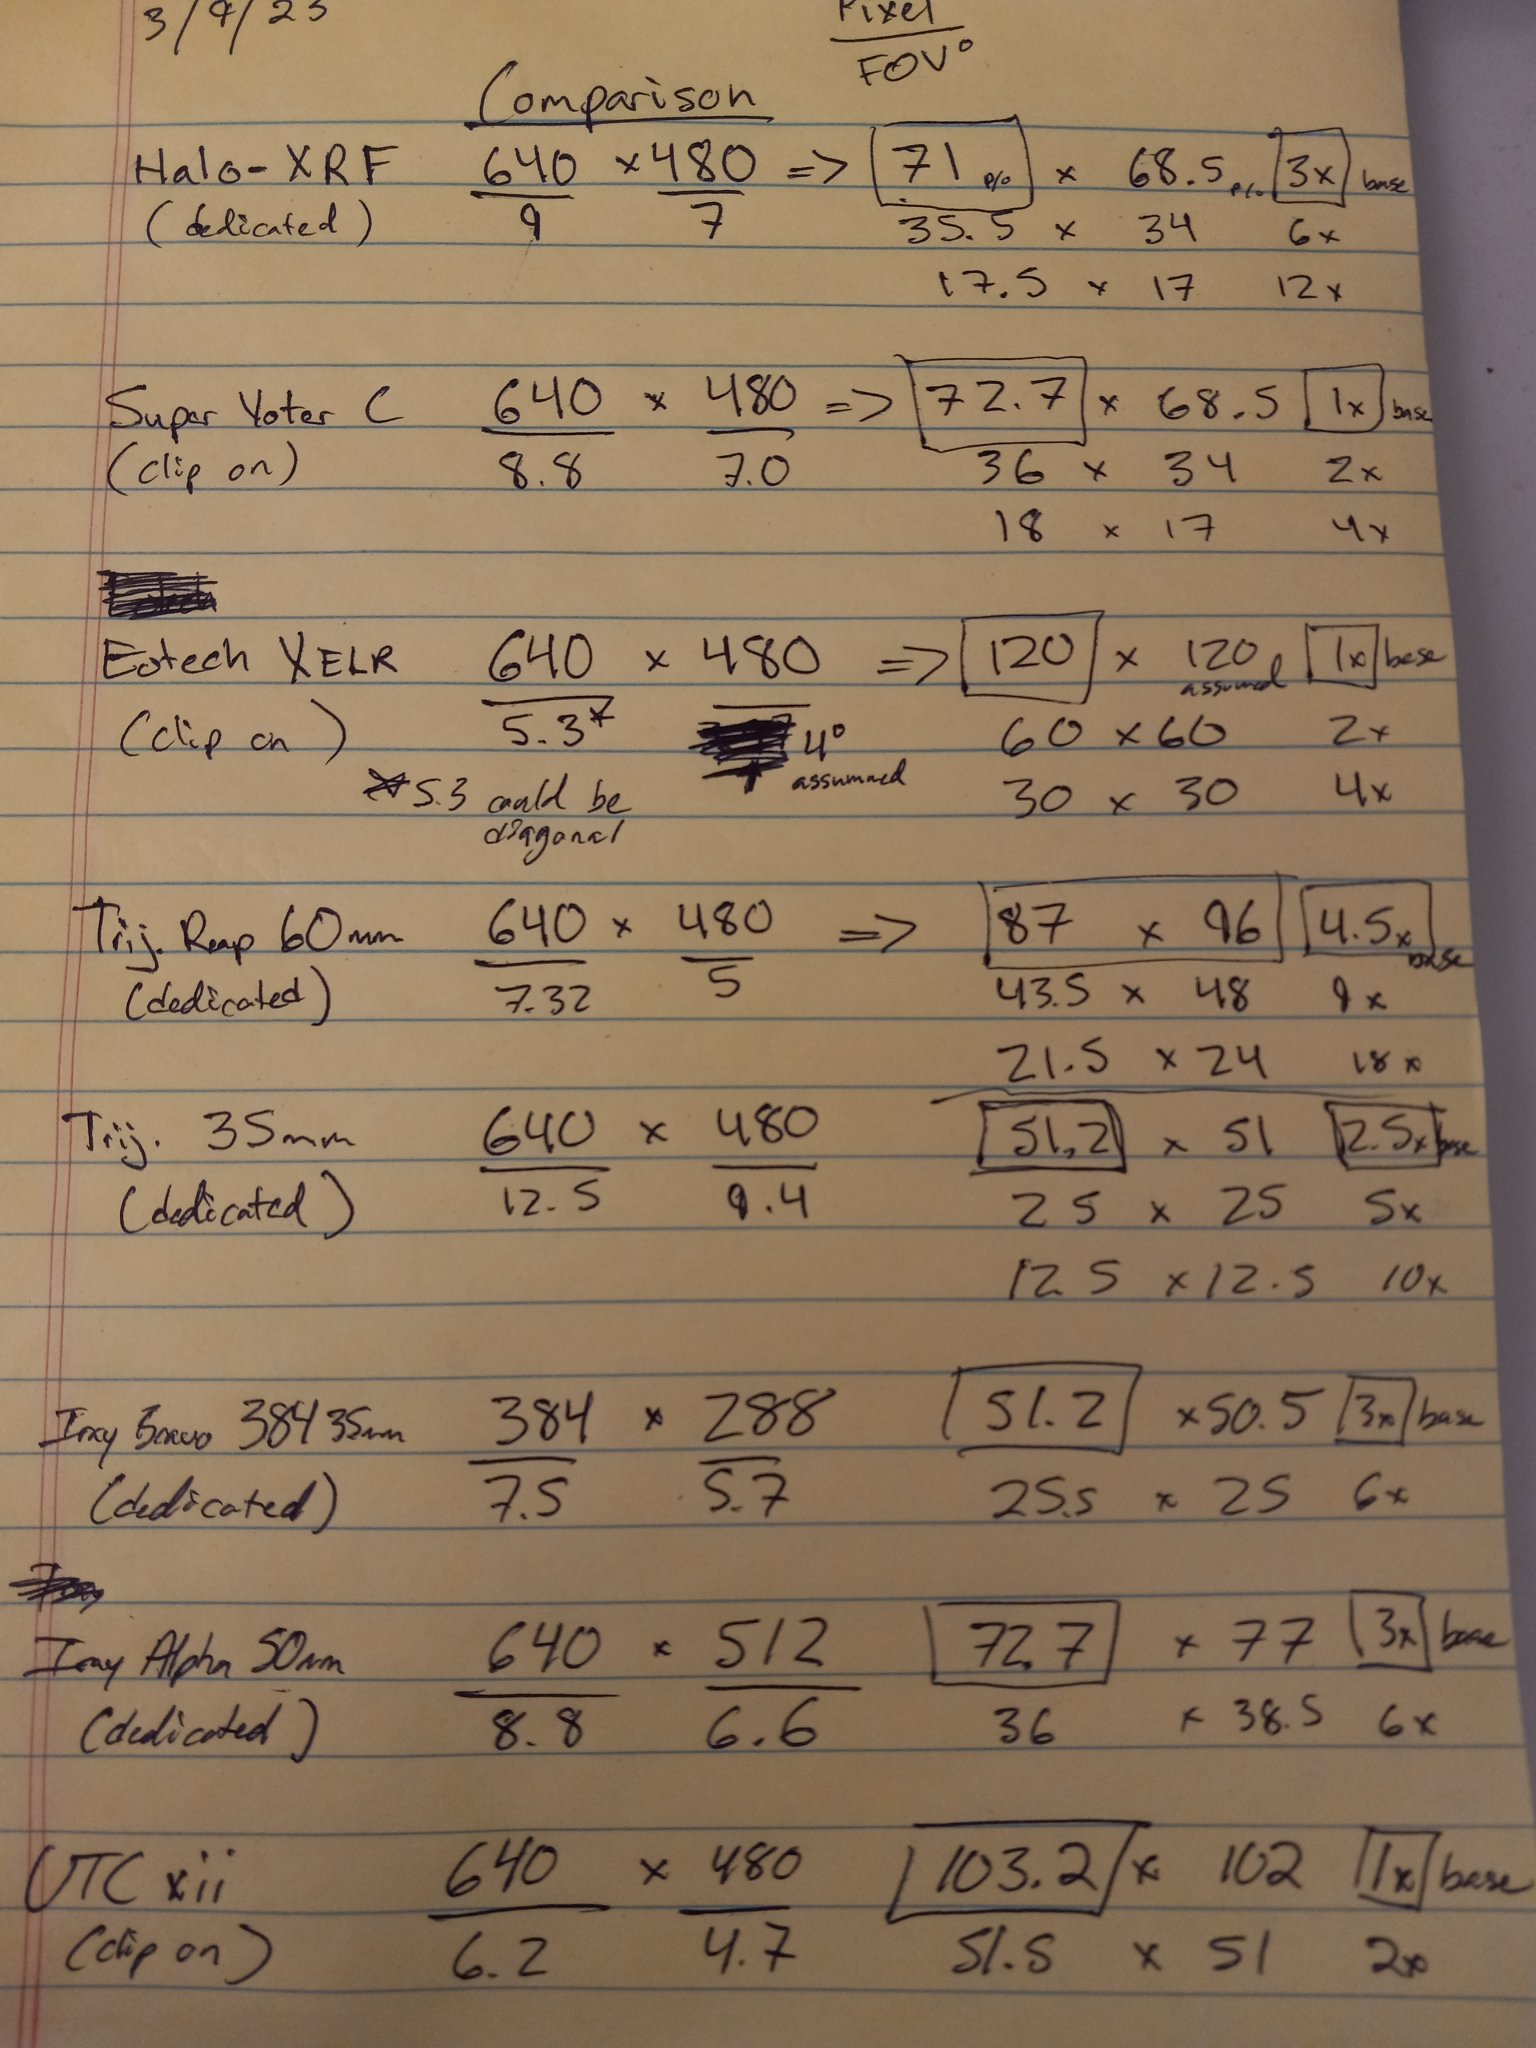 3/9/23
Pixel
FOV°
Comparison
Halo-XRF 640 × 480 => 71 p/o × 68.5 p/o 3x base
(dedicated) 9 7 35.5 × 34 6x
17.5 × 17 12x
Super Yoter C 640 × 480 => 72.7 × 68.5 1x base
(clip on) 8.8 7.0 36 × 34 2x
18 × 17 4x
Eotech XELR 640 × 480 => 120 × 120 assumed 1x base
(clip on) 5.3* 4° assummed 60 × 60 2x
*5.3 could be 30 × 30 4x
diagonal
Trij. Reap 60mm 640 × 480 => 87 × 96 4.5x base
(dedicated) 7.32 5 43.5 × 48 9x
21.5 × 24 18x
Trij. 35mm 640 × 480 51.2 × 51 2.5x base
(dedicated) 12.5 9.4 25 × 25 5x
12.5 × 12.5 10x
Iray Bravo 384 35mm 384 × 288 51.2 × 50.5 3x base
(dedicated) 7.5 5.7 25.5 × 25 6x
Iray Alpha 50mm 640 × 512 72.7 × 77 3x base
(dedicated) 8.8 6.6 36 × 38.5 6x
UTC xii 640 × 480 103.2 × 102 1x base
(clip on) 6.2 4.7 51.5 × 51 2x